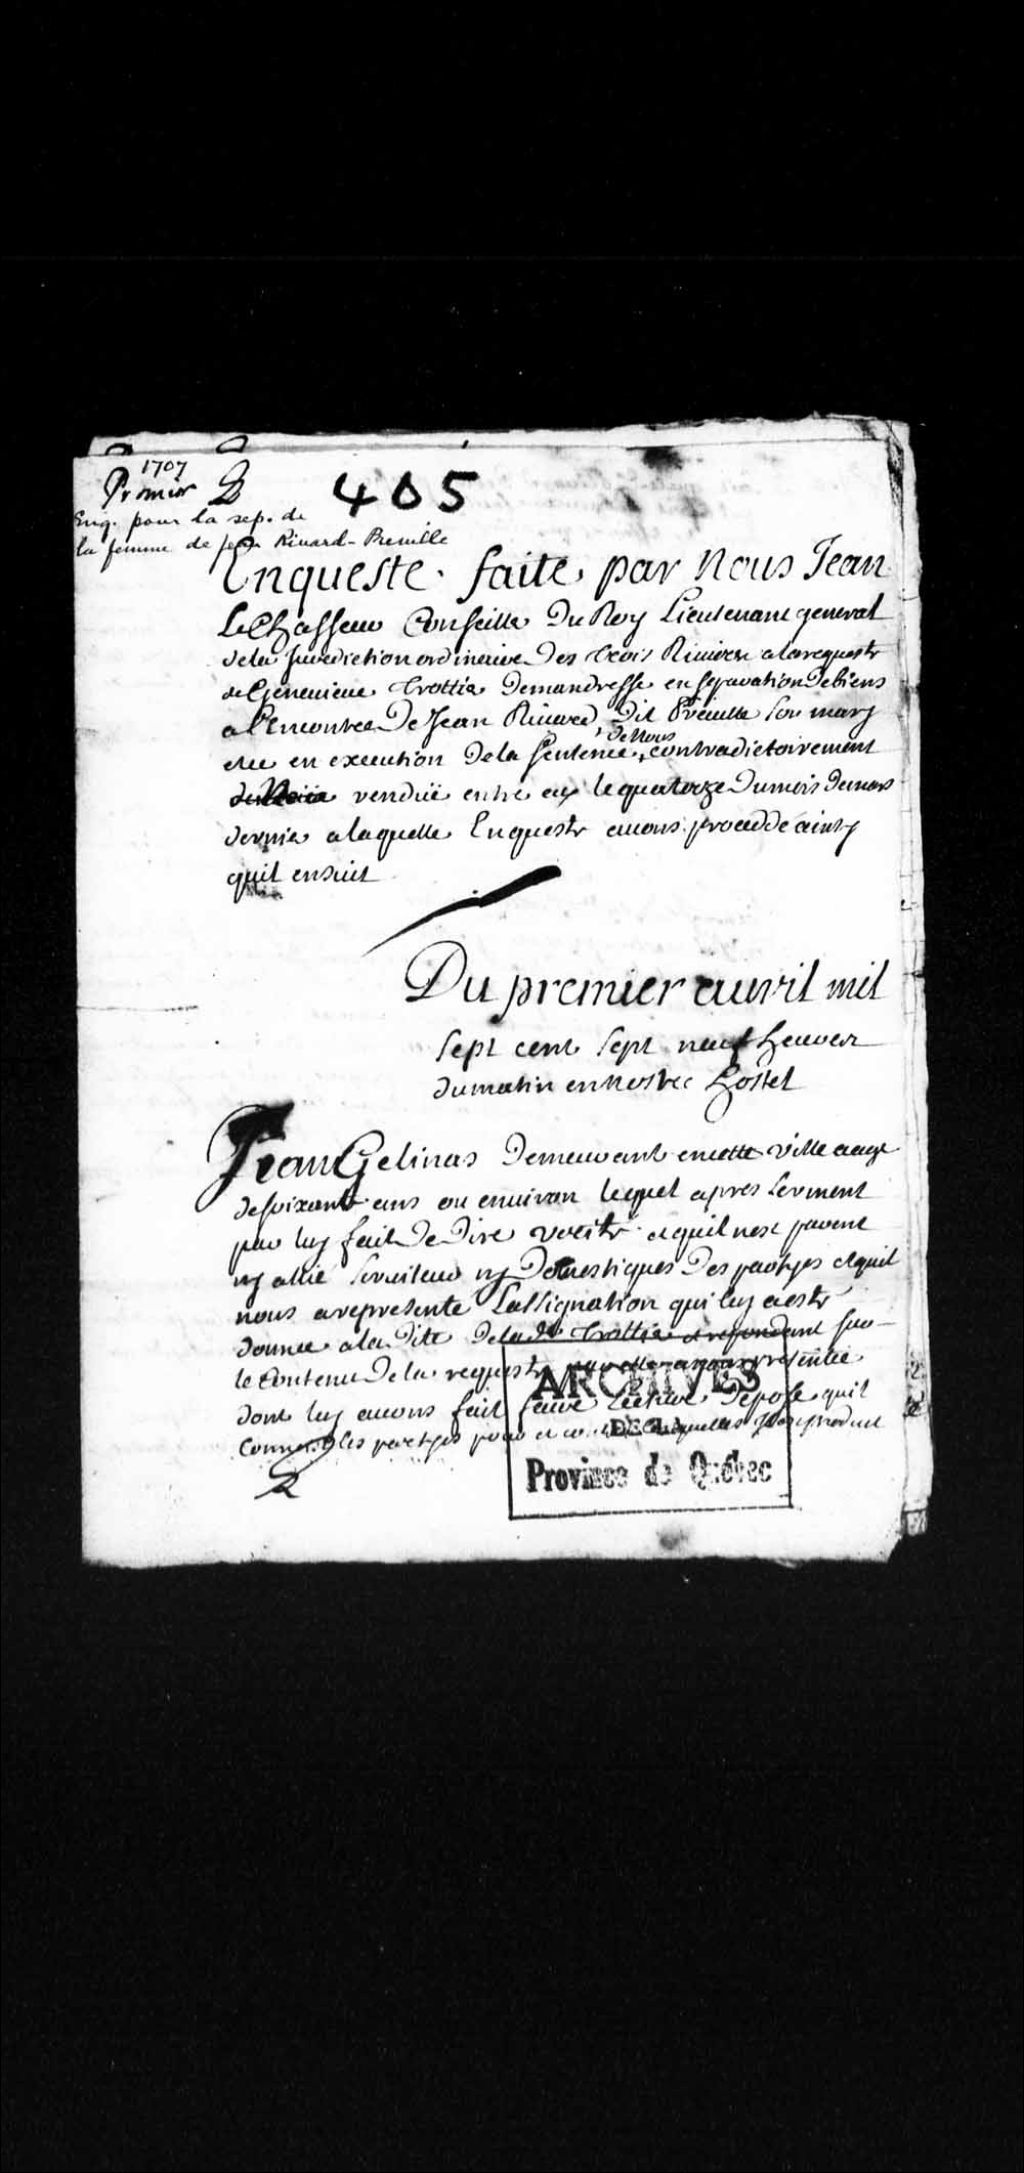 1707
Premier
405
Enq. pour la sep. de
la femme de Jean Rivard-Preville
Enqueste faite par Nous Jean
LeChasseur Conseiller Du Roy Lieutenant general
de la Jurediction ordinaire Des trois Rivieres a la requeste
de Genevieve Trottier Demandresse en separation De biens
a l'Encontre De Jean Rivard, Dit Preville son mary
en execution De la Sentence, contradictoirement
De Nous
rendüe entre eux le quatorze Du mois De mars
dernier a laquelle Enqueste avons procedde ainsy
quil ensuit
Du premier avril mil
sept cent sept neuf heures
du matin en nostre hostel
Jean Gelinas Demeurant en cette ville aagé
de soixante ans ou environ lequel apres serment
par luy fait De Dire verité et quil nest parent
ny allié serviteur ny Domestiques Des partyes et quil
nous a representé Lassignation qui luy a esté
donnée a la Dite De la Trottier et repondant sur
le Contenu De la requeste presentée
dont luy avons fait faire Lecture Depose quil
Connoist les partyes pour
ARCHIVES
DE LA
Province de Québec